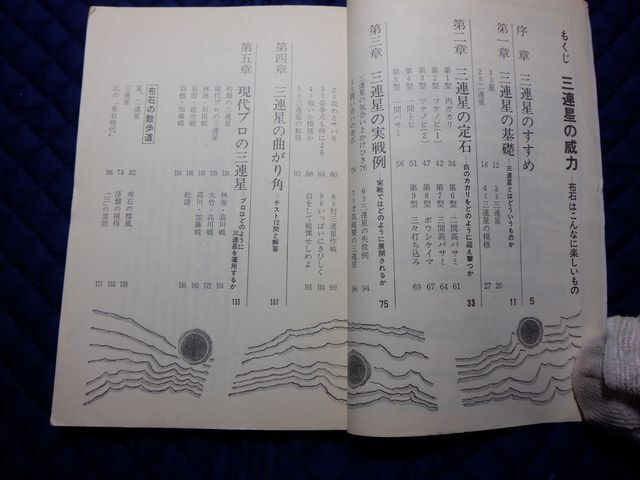 もくじ 三連星の威力 布石はこんなに楽しいもの
序章 三連星のすすめ 5
第一章 三連星の基礎 ―三連星とはどういうものか 11
1＝星 12
2＝二連星 18
3＝三連星 20
4＝三連星の模様 27
第二章 三連星の定石 ―白のカカリをどのように迎え撃つか 33
第1型 内ガカリ 34
第2型 ツケノビ(1) 42
第3型 ツケノビ(2) 47
第4型 一間トビ 51
第5型 一間バサミ 56
第6型 二間高バサミ 61
第7型 三間高バサミ 64
第8型 ボウシケイマ 67
第9型 三々打ち込み 69
第三章 三連星の実戦例 ―実戦ではどのように展開されるか 75
三連星の気合いとかけひき 76
78
2＝攻めとサバキ 80
3＝必争点も時による 84
4＝戦いか模様か 88
5＝三連星の転移 92
6＝三連星の失敗例 94
96
8＝対三連星作戦 99
9＝いっぱいにきびしく 104
白をして戦慄せしめよ 105
第四章 三連星の曲がり角 ―テスト12問と解答 107
第五章 現代プロの三連星 ―プロはどのように三連星を運用するか 133
初型の三連星 134
現代プロの三連星
林海・石田戦
石田・趙治戦
羽根・加藤戦 154
林海・高川戦
大竹・高川戦 164
高川・加藤戦 172
総譜 186
布石の散歩道
星、二連星 32
三連星 74
私の〝布石時代〟 106
布石の構風 138
序盤の損得 153
〝三〟の用語 171